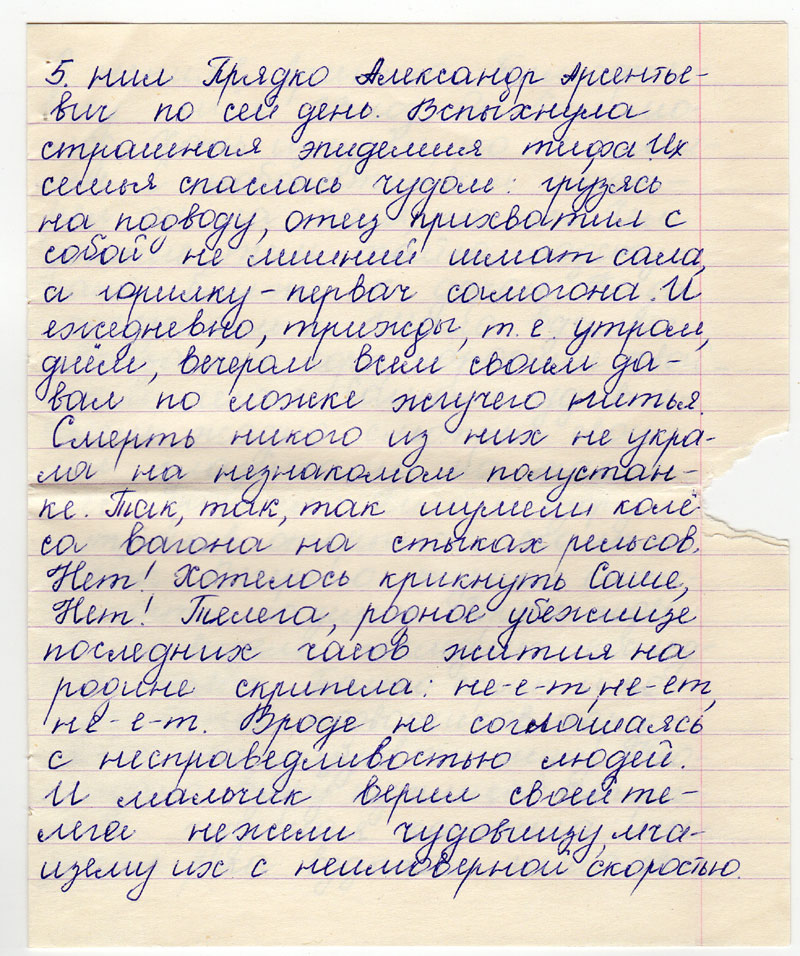 5. нил Прядко Александр Арсентье-
вич по сей день. Вспыхнула
страшная эпидемия тифа. Их
семья спаслась чудом: грузясь
на подводу, отец прихватил с
собой не лишний шмат сала,
а горилку - первач самогона. И
ежедневно, трижды, т. е. утром,
днём, вечером всем своим да-
вал по ложке жгучего питья.
Смерть никого из них не укра-
ла на незнакомом полустан-
ке. Так, так, так шумели колё-
са вагона на стыках рельсов.
Нет! Хотелось крикнуть Саше,
Нет! Телега, родное убежище
последних часов жития на
родине скрипела: не-е-т, не-ет,
не-е-т. Вроде не соглашаясь
с несправедливостью людей.
И мальчик верил своей те-
леге нежели чудовищу, мча-
щему их с неимоверной скоростью.